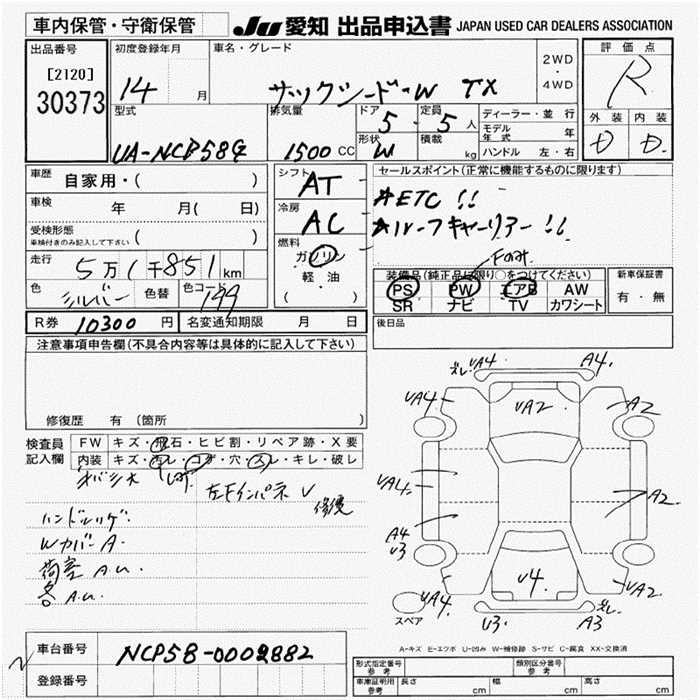 車内保管・守衛保管
JU 愛知 出品申込書 JAPAN USED CAR DEALERS ASSOCIATION
出品番号 初度登録年月 車名・グレード 2WD 4WD 評価点
[2120]
30373
14 月 サックシード・W TX R
外装 内装
D D
型式 排気量 ドア 形状 定員 積載 ディーラー・並行
UA-NCP58G 1500 CC 5 W 5 人 kg モデル年式 年
ハンドル 左・右
車歴 自家用・( )
車検 年 月( 日)
受検形態 車検付きのみ記入して下さい ( )
走行 5万1千851 km
色 シルバー 色替 色コード 199
R券 10300 円 名変通知期限 月 日
シフト AT
冷房 AC
燃料 ガソリン
軽・油
( )
セールスポイント(正常に機能するものに限ります)
★ETC !!
★ルーフキャーリアー !!
Fのみ
装備品(純正品に限り○をつけてください) 新車保証書
PS PW エアB AW 有・無
SR ナビ TV カワシート
後日品
注意事項申告欄(不具合内容等は具体的に記入して下さい)
修復歴 有 (箇所 )
検査員記入欄 FW キズ・飛石・ヒビ割・リペア跡・X要
内装 キズ・汚レ・コゲ・穴・スレ・キレ・破レ
左F インパネ U
Wカバー A.
荷室 A.U.
各 A.U.
ズレ UA4 A4.
UA4. UA2 A2
UA4. A2
A4
U3
UA4. U4. UA2
スペア U3. ズレ A3
A-キズ E-エクボ U-凹み W-補修跡 S-サビ C-腐食 XX-交換済
車台番号 NCP58-0002882
登録番号
形式指定番号 参考 類別区分番号 参考
車庫証明用 参考 長さ cm 幅 cm 高さ cm